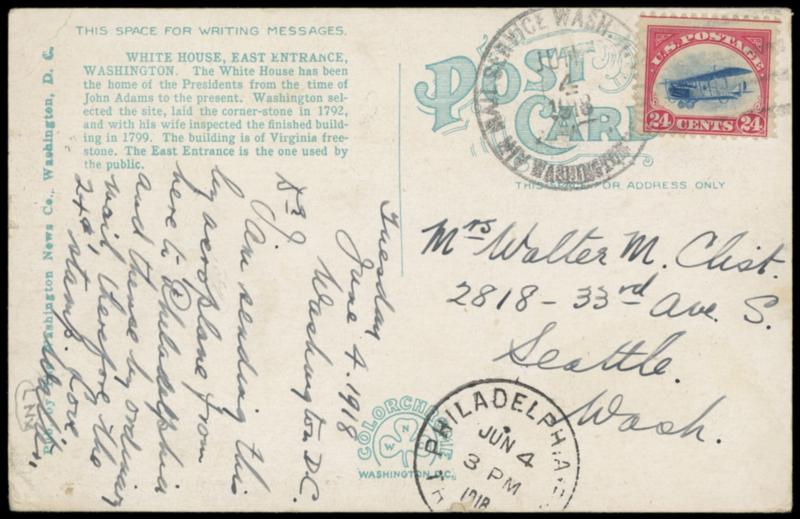 THIS SPACE FOR WRITING MESSAGES.
WHITE HOUSE, EAST ENTRANCE,
WASHINGTON. The White House has been
the home of the Presidents from the time of
John Adams to the present. Washington sel-
ected the site, laid the corner-stone in 1792,
and with his wife inspected the finished build-
ing in 1799. The building is of Virginia free-
stone. The East Entrance is the one used by
the public.
Washington News Co., Washington, D. C.
Tuesday
June 4. 1918
Washington D.C.
Dr J.
Am sending this
by aeroplane from
here to Philadelphia
and thence by ordinary
mail therefore the
24¢ stamp. Love
POST
CARD
THIS SPACE FOR ADDRESS ONLY
AIR MAIL SERVICE WASH.
JUN
4
1918
U.S. POSTAGE
24 CENTS 24
Mrs Walter M. Clist.
2818 - 33rd Ave S.
Seattle.
Wash.
COLORCHROME
W N
WASHINGTON D.C.
PHILADELPHIA
JUN 4
3 PM
1918